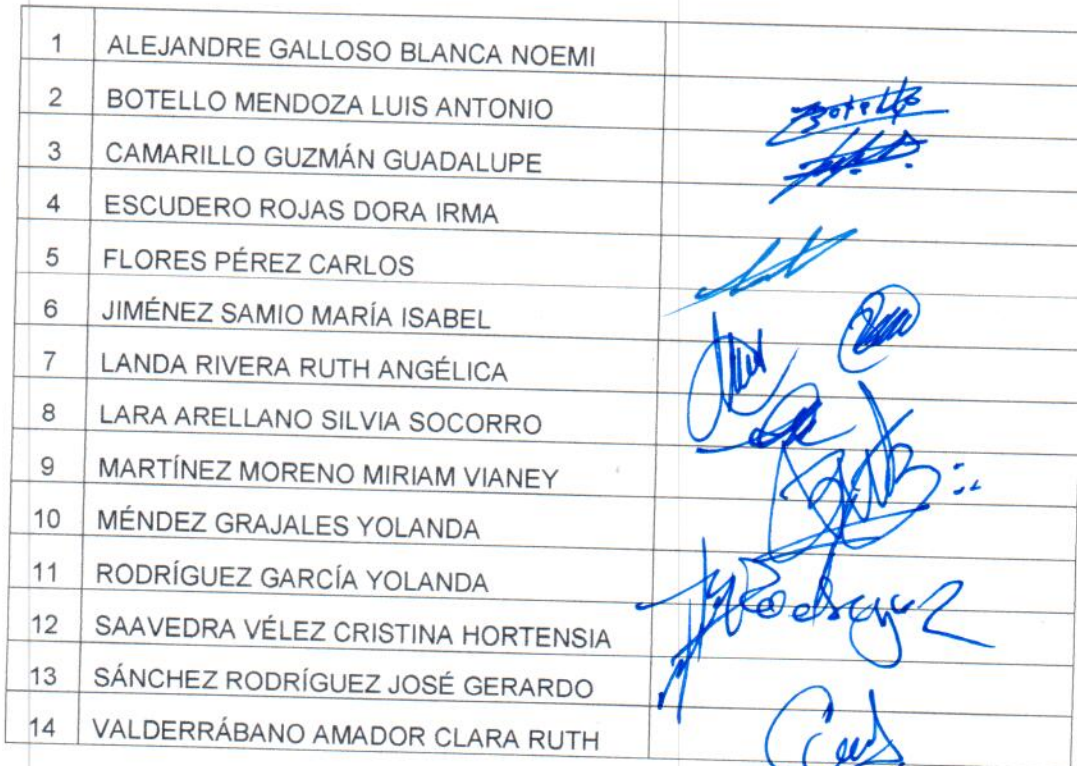 1 ALEJANDRE GALLOSO BLANCA NOEMI
2 BOTELLO MENDOZA LUIS ANTONIO Botello
3 CAMARILLO GUZMÁN GUADALUPE
4 ESCUDERO ROJAS DORA IRMA
5 FLORES PÉREZ CARLOS
6 JIMÉNEZ SAMIO MARÍA ISABEL
7 LANDA RIVERA RUTH ANGÉLICA
8 LARA ARELLANO SILVIA SOCORRO
9 MARTÍNEZ MORENO MIRIAM VIANEY
10 MÉNDEZ GRAJALES YOLANDA
11 RODRÍGUEZ GARCÍA YOLANDA
12 SAAVEDRA VÉLEZ CRISTINA HORTENSIA
13 SÁNCHEZ RODRÍGUEZ JOSÉ GERARDO
14 VALDERRÁBANO AMADOR CLARA RUTH